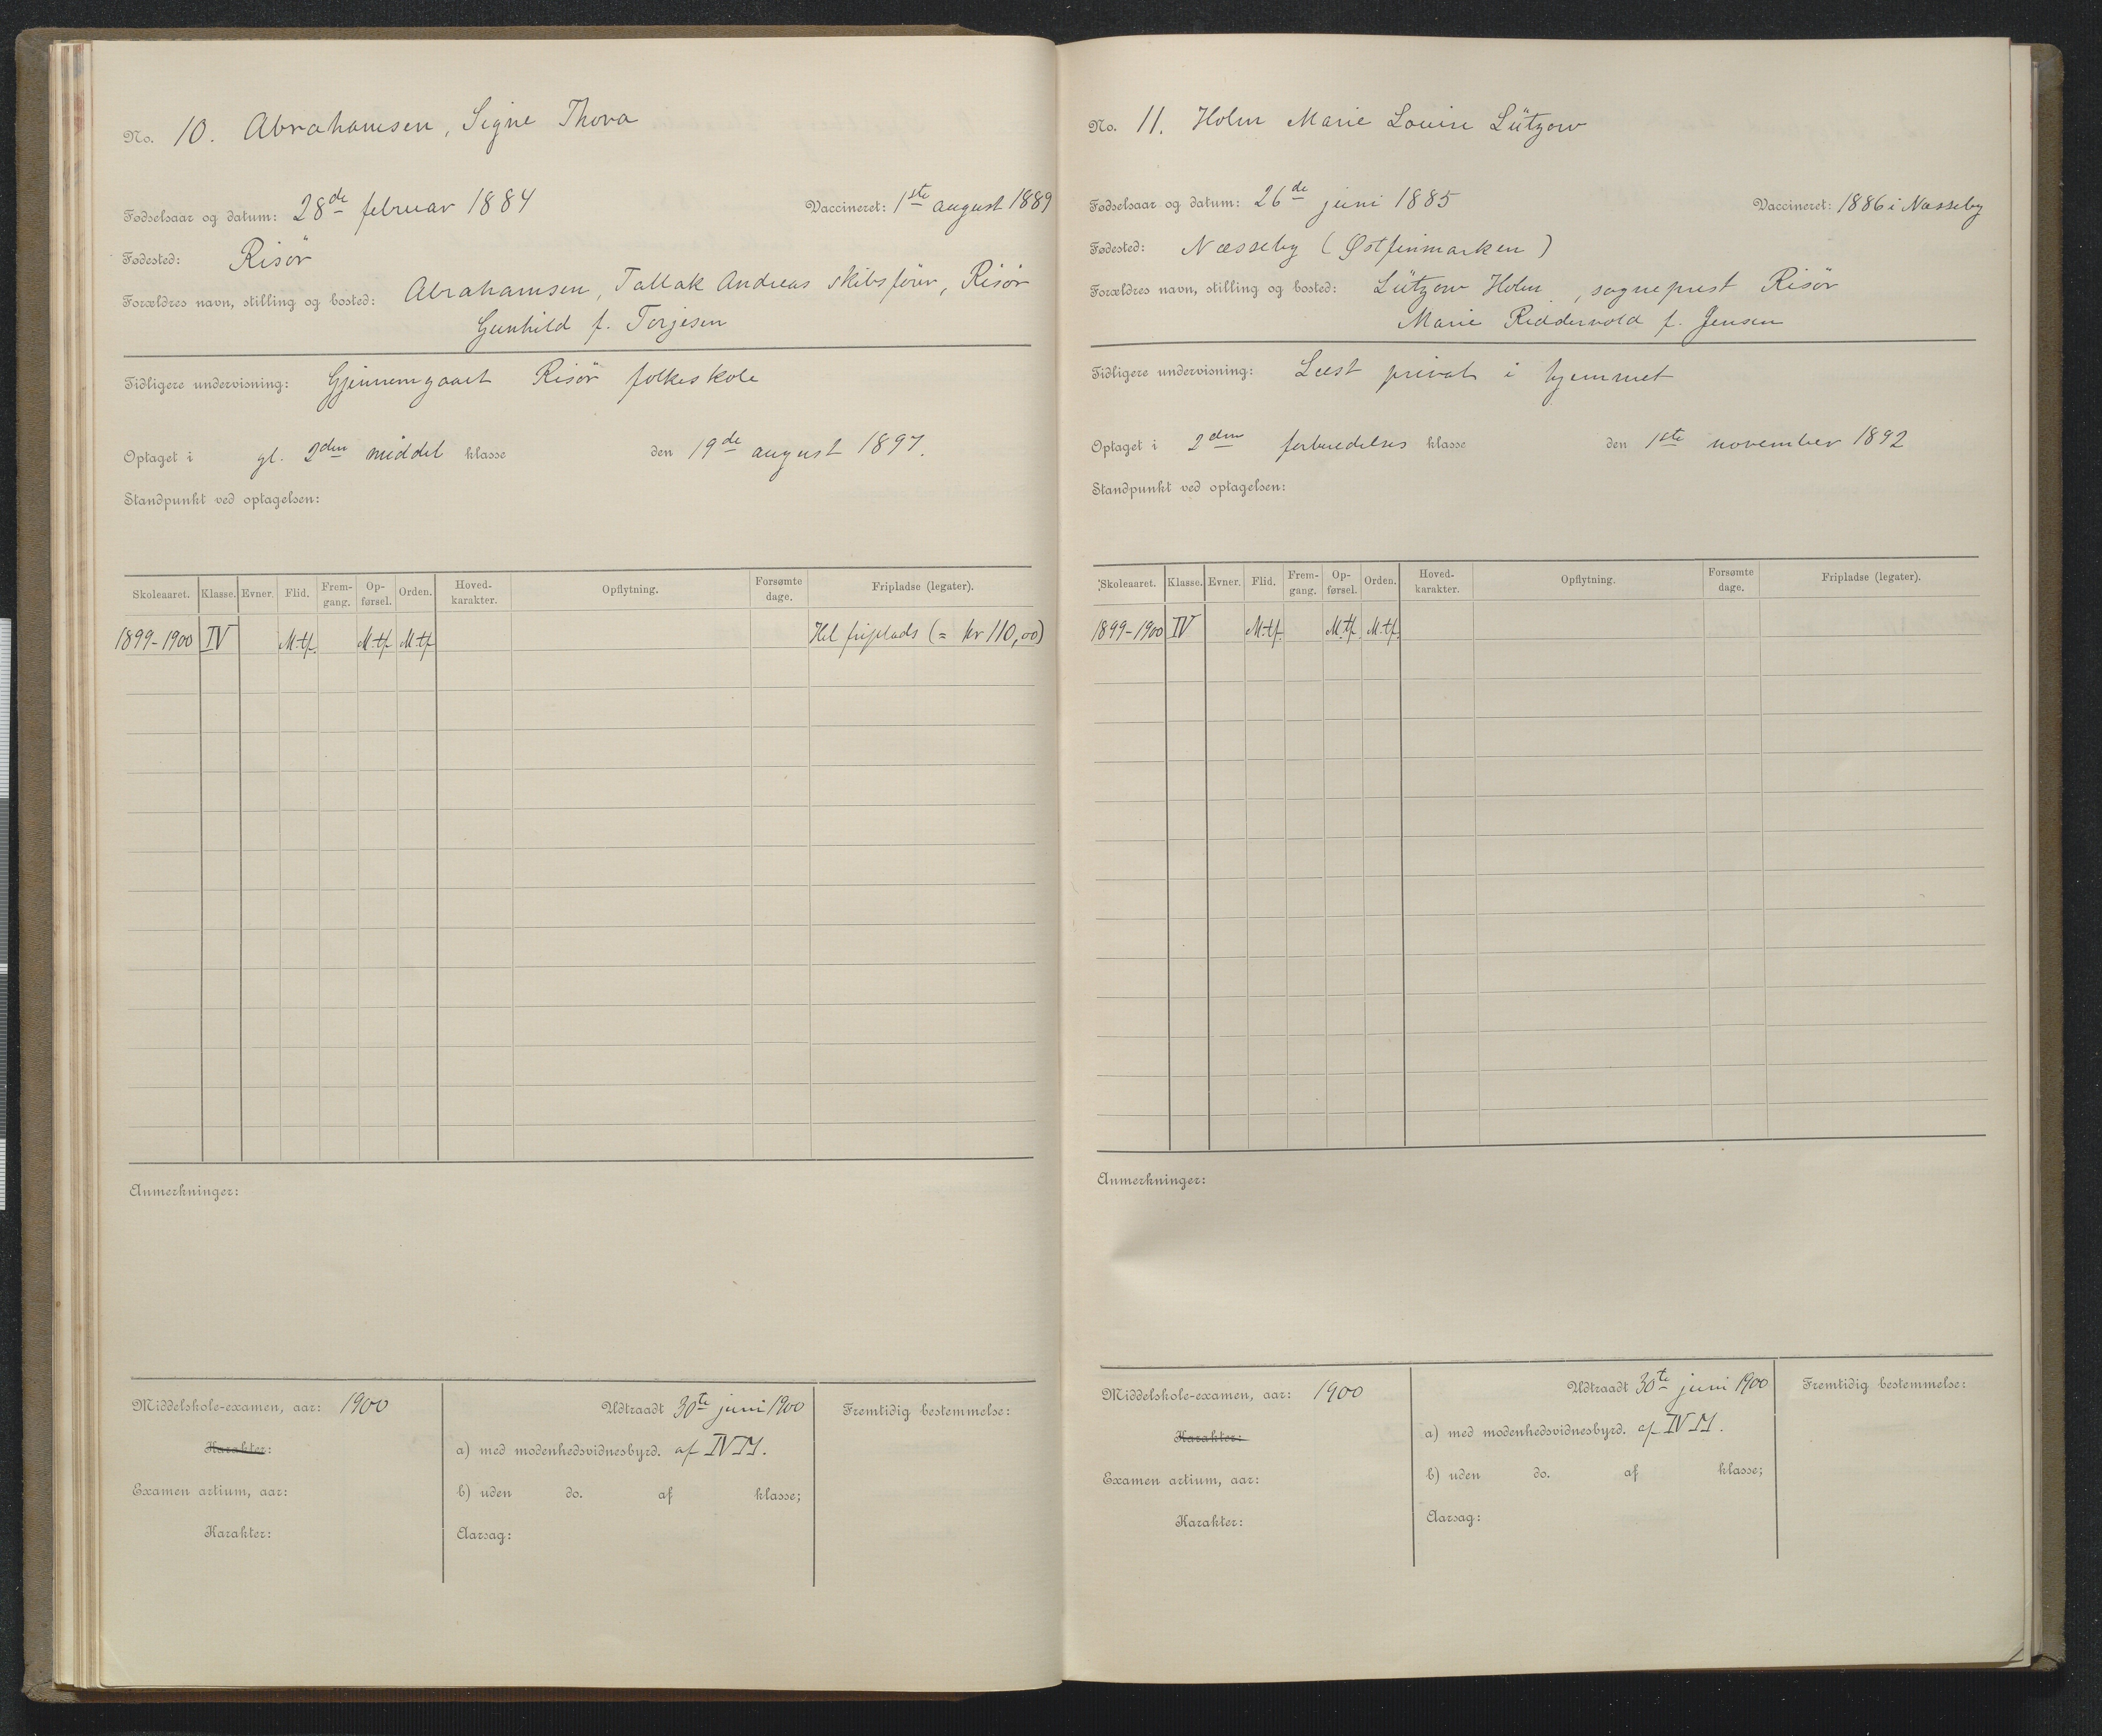 No. 10. Abrahamsen, Signe Thora
Fødselsaar og datum: 28de februar 1884 Vaccineret: 1ste august 1889
Fødested: Risör
Forældres navn, stilling og bosted: Abrahamsen, Tallak Andreas skibsförer, Risör
Gunhild f. Torjesen
Tidligere undervisning: Gjennemgaaet Risör folkeskole
Optaget i gl. 2den middel klasse den 19de august 1897.
Standpunkt ved optagelsen:
Skoleaaret. Klasse. Evner. Flid. Frem-gang. Op-førsel. Orden. Hoved-karakter. Opflytning. Forsømte dage. Fripladse (legater).
1899-1900 IV M.tf. M.tf. M.tf. Hel friplads (= kr 110,00)
Anmerkninger:
Middelskole-examen, aar: 1900 Udtraadt 30te juni 1900 Fremtidig bestemmelse:
Karakter: a) med modenhedsvidnesbyrd. af IV M.
Examen artium, aar: b) uden do. af klasse;
Karakter: Aarsag:
No. 11. Holm Marie Louise Lützow
Fødselsaar og datum: 26de juni 1885 Vaccineret: 1886 i Næsseby
Fødested: Næsseby (Østfinmarken)
Forældres navn, stilling og bosted: Lützow Holm, sogneprest Risör
Marie Riddervold f. Jensen
Tidligere undervisning: Læst privat i hjemmet
Optaget i 2den forberedelses klasse den 1ste november 1892
Standpunkt ved optagelsen:
Skoleaaret. Klasse. Evner. Flid. Frem-gang. Op-førsel. Orden. Hoved-karakter. Opflytning. Forsømte dage. Fripladse (legater).
1899-1900 IV M.tf. M.tf. M.tf.
Anmerkninger:
Middelskole-examen, aar: 1900 Udtraadt 30te juni 1900 Fremtidig bestemmelse:
Karakter: a) med modenhedsvidnesbyrd. af IV M.
Examen artium, aar: b) uden do. af klasse;
Karakter: Aarsag: